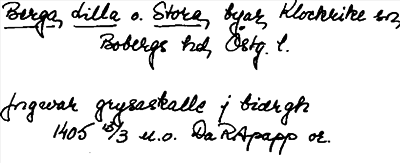 Berga, Lilla o. Stora, byar, Klockrike sn,
Bobergs hd, Östg. l.
Ingwar grysaskalle j biærgh
1405 15/3 u.o. Da RApapp or.